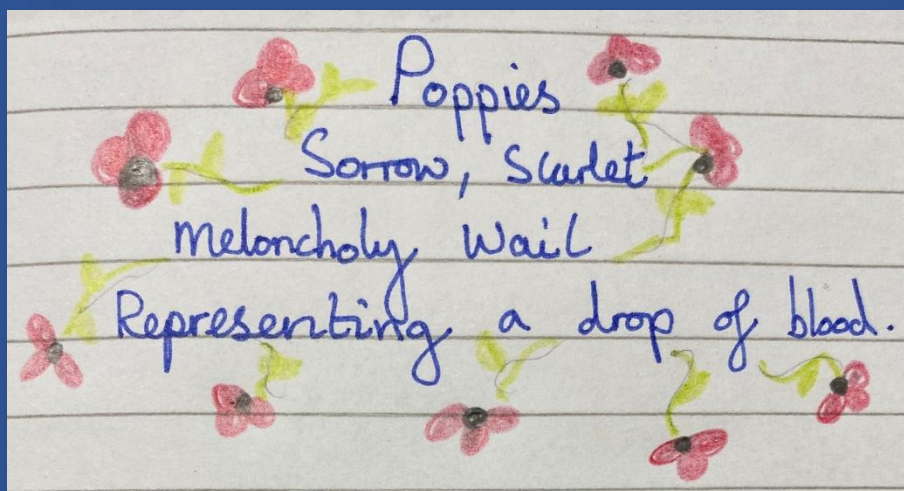 Poppies
Sorrow, Scarlet
Meloncholy Wail
Representing a drop of blood.